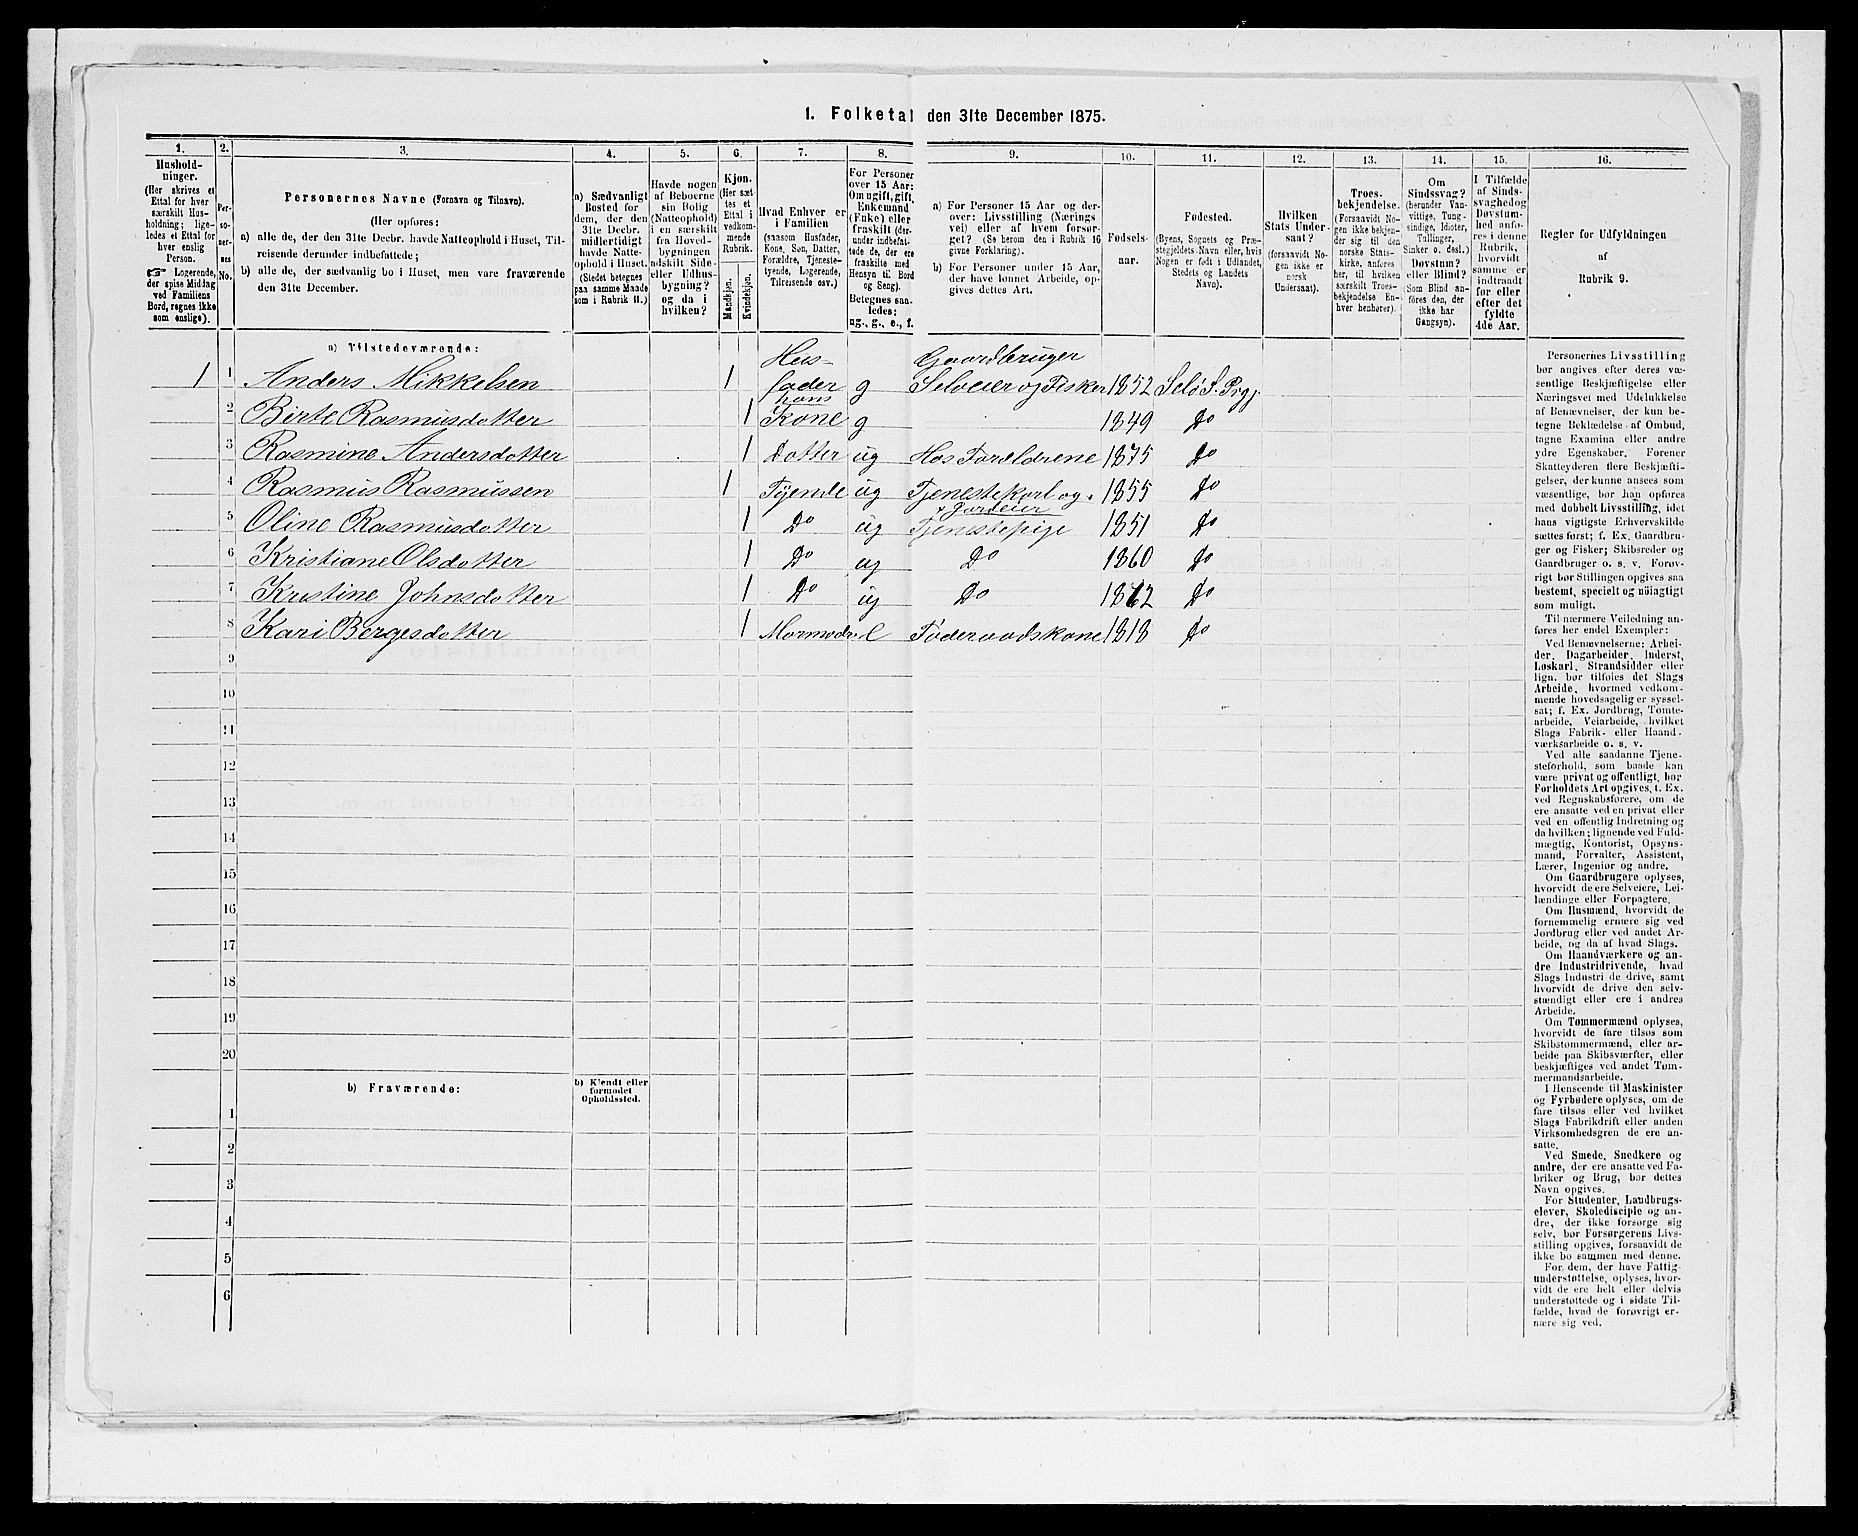 1. Folketal den 31te December 1875.
1.
Hushold-
ninger.
(Her skrives et
Ettal for hver
særskilt Hus-
holdning; lige-
ledes et Ettal for
hver enslig
Person.
☞ Logerende,
der spise Middag
ved Familiens
Bord, regnes ikke
som enslige).
2.
Per-
so-
ner-
nes
No.
3.
Personernes Navne (Fornavn og Tilnavn).
(Her opføres:
a) alle de, der den 31te Decbr. havde Natteophold i Huset, Til-
reisende derunder indbefattede;
b) alle de, der sædvanlig bo i Huset, men vare fraværende
den 31te December.
4.
a) Sædvanligt
Bosted for
dem, der den
31te Decbr.
midlertidigt
havde Natte-
ophold i Huset
(Stedet betegnes
paa samme Maade
som i Rubrik 11.)
5.
Havde nogen
af Beboerne
sin Bolig
(Natteophold)
i en særskilt
fra Hoved-
bygningen
adskilt Side-
eller Udhus-
bygning?
og da i
hvilken?
6.
Kjøn.
(Her sæt-
tes et
Ettal i
vedkom-
mende
Rubrik.
Mandkjøn.
Kvindekjøn.
7.
Hvad Enhver er
i Familien
(saasom Husfader,
Kone, Søn, Datter,
Forældre, Tjeneste-
tyende, Logerende,
Tilreisende osv.)
8.
For Personer
over 15 Aar:
Om ugift, gift,
Enkemand
(Enke) eller
fraskilt (der-
under indbefat-
tede de, der ere
fraskilte med
Hensyn til Bord
og Seng).
Betegnes saa-
ledes:
ug., g., e., f.
9.
a) For Personer 15 Aar og der-
over: Livsstilling (Nærings-
vei) eller af hvem forsør-
get? (Se herom den i Rubrik 16
givne Forklaring).
b) For Personer under 15 Aar,
der have lønnet Arbeide, op-
gives dettes Art.
10.
Fødsels-
aar.
11.
Fødested.
(Byens, Sognets og Præ-
stegjeldets Navn eller, hvis
Nogen er født i Udlandet,
Stedets og Landets
Navn).
12.
Hvilken
Stats Under-
saat?
(forsaavidt No-
gen ikke er
norsk
Undersaat).
13.
Troes-
bekjendelse.
(Forsaavidt No-
gen ikke bekjen-
der sig til den
norske Stats-
kirke, anføres
her, til hvilken
særskilt Troes-
bekjendelse En-
hver henhører).
14.
Om
Sindssvag?
(herunder Van-
vittige, Tung-
sindige, Idioter,
Tullinger,
Sinker o. desl.)
Døvstum?
eller Blind?
(Som Blind an-
føres den, der
ikke har
Gangsyn).
15.
I Tilfælde
af Sinds-
svaghed og
Døvstum-
hed anfø-
res i denne
Rubrik,
hvorvidt
samme er
indtraadt
før eller
efter det
fyldte
4de Aar.
16.
Regler for Udfyldningen
af
Rubrik 9.
a) Tilstedeværende:
1 1 Anders Mikkelsen 1 Hus-fader g Gaardbruger Selveier og Fisker 1852 Selø S. Prgj.
2 Birte Rasmusdotter 1 hans Kone g 1849 Do
3 Rasmine Andersdotter 1 Dotter ug Hos Forældrene 1875 Do
4 Rasmus Rasmussen 1 Tyende ug Tjenestekarl og Jordeier 1855 Do
5 Oline Rasmusdotter 1 Do ug Tjenestepige 1851 Do
6 Kristiane Olsdotter 1 Do ug Do 1860 Do
7 Kristine Johnsdotter 1 Do ug Do 1862 Do
8 Kari Bergesdotter 1 Mormoder e Føderaadskone 1818 Do
9
10
11
12
13
14
15
16
17
18
19
20
b) Fraværende:
b) Kjendt eller
formodet
Opholdssted.
1
2
3
4
5
6
Personernes Livsstilling
bør angives efter deres væ-
sentlige Beskjæftigelse eller
Næringsvei med Udelukkelse
af Benævnelser, der kun be-
tegne Beklædelse af Ombud,
tagne Examina eller andre
ydre Egenskaber. Forener
Skatteyderen flere Beskjæfti-
gelser, der kunne ansees som
væsentlige, bør han opføres
med dobbelt Livsstilling, idet
hans vigtigste Erhvervskilde
sættes først; f. Ex. Gaardbru-
ger og Fisker; Skibsreder og
Gaardbruger o. s. v. Forøv-
rigt bør Stillingen opgives saa
bestemt, specielt og nøiagtigt
som muligt.
Til nærmere Veiledning an-
føres her endel Exempler:
Ved Benævnelserne: Arbei-
der, Dagarbeider, Inderst,
Løskarl, Strandsidder eller
lign. bør tilføies det Slags
Arbeide, hvormed vedkom-
mende hovedsagelig er syssel-
sat; f. Ex. Jordbrug, Tomte-
arbeide, Veiarbeide, hvilket
Slags Fabrik- eller Haand-
værksarbeide o. s. v.
Ved alle saadanne Tjene-
steforhold, som baade kan
være privat og offentligt, bør
Forholdets Art opgives, t. Ex.
ved Regnskabsførere, om de
ere ansatte ved en privat eller
ved en offentlig Indretning og
da hvilken; lignende ved Fuld-
mægtig, Kontorist, Opsyns-
mand, Forvalter, Assistent,
Lærer, Ingeniør og andre.
Om Gaardbrugere oplyses,
hvorvidt de ere Selveiere, Lei-
lændinge eller Forpagtere.
Om Husmænd, hvorvidt de
fornemmelig ernære sig ved
Jordbrug eller ved andet Ar-
beide, og da af hvad Slags.
Om Haandværkere og an-
dre Industridrivende, hvad
Slags Industri de drive, samt
hvorvidt de drive den selv-
stændigt eller ere i andres
Arbeide.
Om Tømmermænd oplyses,
hvorvidt de fare tilsøs som
Skibstømmermænd, eller ar-
beide paa Skibsværfter, eller
beskjæftiges ved andet Tøm-
mermandsarbeide.
I Henseende til Maskinister
og Fyrbødere oplyses, om de
fare tilsøs eller ved hvilket
Slags Fabrikdrift eller anden
Virksomhedsgren de ere an-
satte.
Ved Smede, Snedkere og
andre, der ere ansatte ved Fa-
briker og Brug, bør dettes
Navn opgives.
For Studenter, Landbrugs-
elever, Skoledisciple og an-
dre, der ikke forsørge sig
selv, bør Forsørgerens Livs-
stilling opgives, forsaavidt de
ikke bo sammen med denne.
For dem, der have Fattig-
understøttelse, oplyses, hvor-
vidt de ere helt eller delvis
understøttede og i sidste Til-
fælde, hvad de forøvrigt er-
nære sig ved.